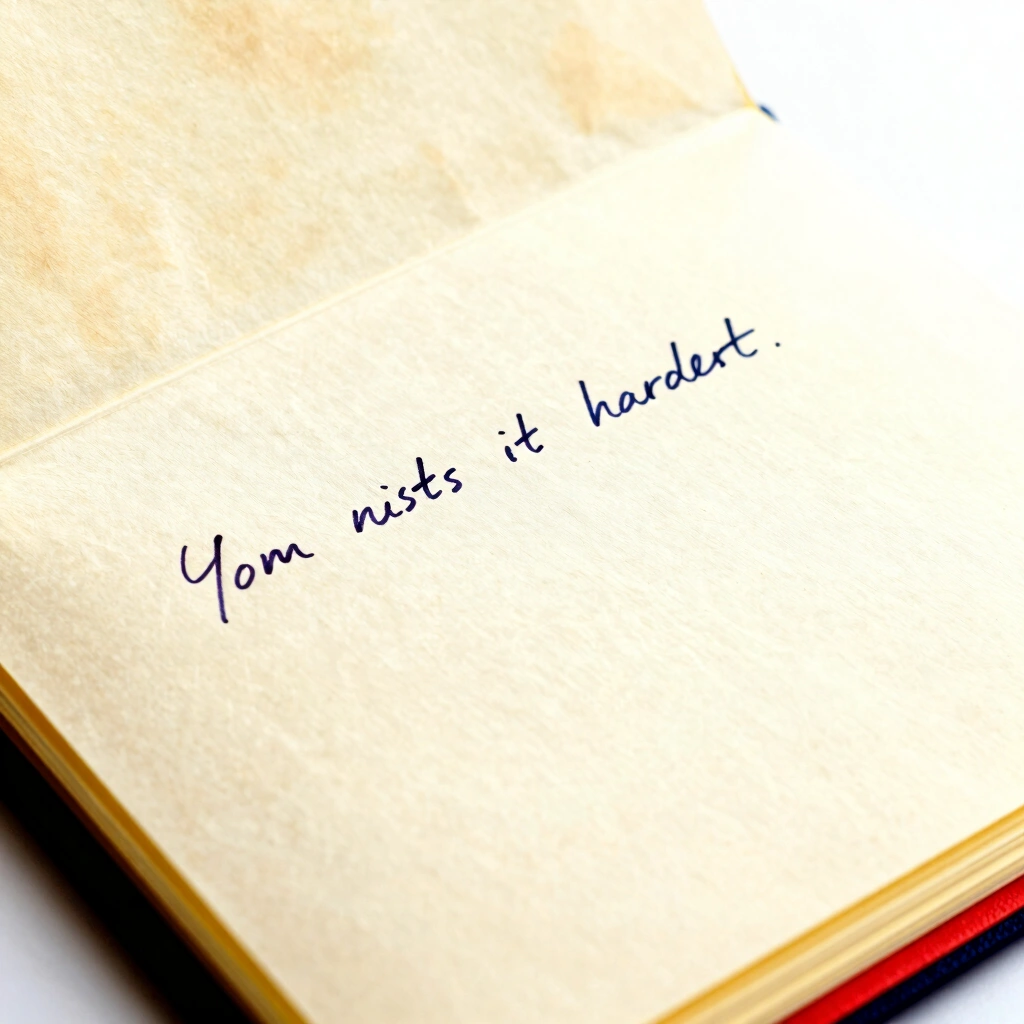 Yom nists it hardert.